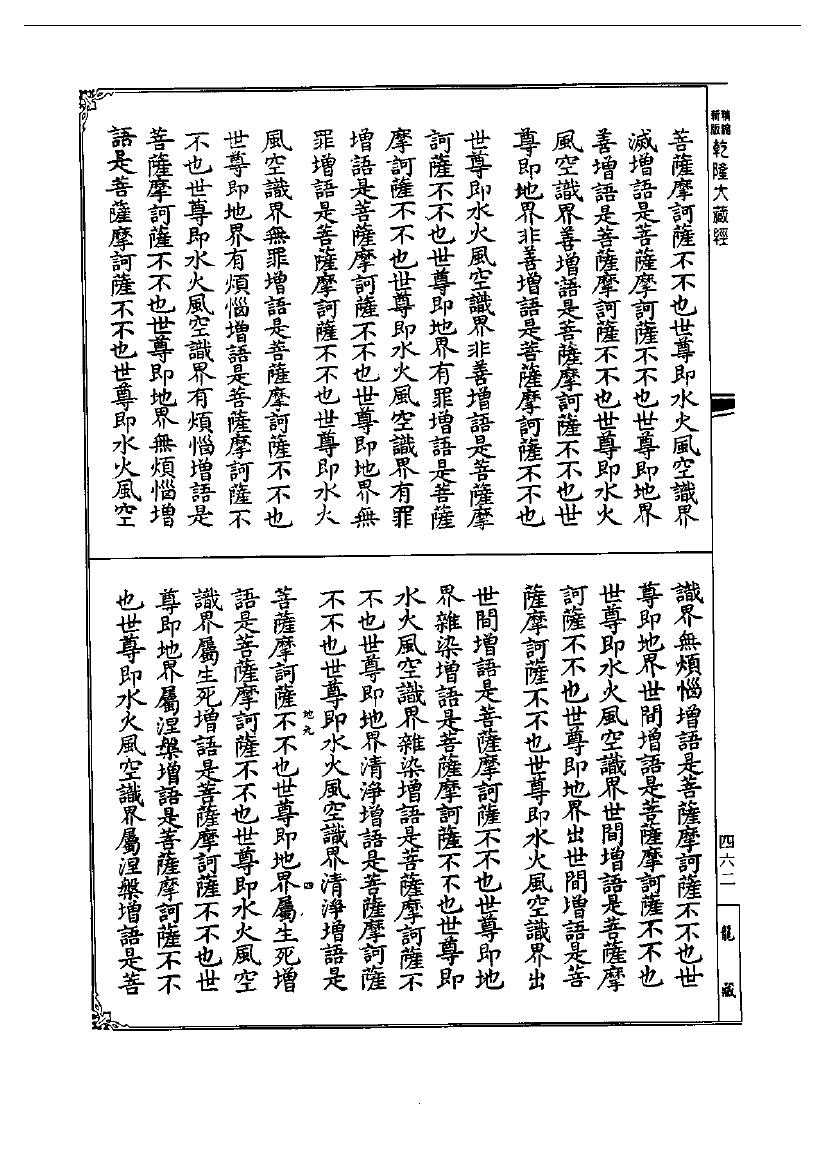 精縮新版 乾隆大藏經
菩薩摩訶薩不不也世尊即水火風空識界
滅增語是菩薩摩訶薩不不也世尊即地界
善增語是菩薩摩訶薩不不也世尊即水火
風空識界善增語是菩薩摩訶薩不不也世
尊即地界非善增語是菩薩摩訶薩不不也
世尊即水火風空識界非善增語是菩薩摩
訶薩不不也世尊即地界有罪增語是菩薩
摩訶薩不不也世尊即水火風空識界有罪
增語是菩薩摩訶薩不不也世尊即地界無
罪增語是菩薩摩訶薩不不也世尊即水火
風空識界無罪增語是菩薩摩訶薩不不也
世尊即地界有煩惱增語是菩薩摩訶薩不
不也世尊即水火風空識界有煩惱增語是
菩薩摩訶薩不不也世尊即地界無煩惱增
語是菩薩摩訶薩不不也世尊即水火風空
識界無煩惱增語是菩薩摩訶薩不不也世
尊即地界世間增語是菩薩摩訶薩不不也
世尊即水火風空識界世間增語是菩薩摩
訶薩不不也世尊即地界出世間增語是菩
薩摩訶薩不不也世尊即水火風空識界出
世間增語是菩薩摩訶薩不不也世尊即地
界雜染增語是菩薩摩訶薩不不也世尊即
水火風空識界雜染增語是菩薩摩訶薩不
不也世尊即地界清淨增語是菩薩摩訶薩
不不也世尊即水火風空識界清淨增語是
地九 四
菩薩摩訶薩不不也世尊即地界屬生死增
語是菩薩摩訶薩不不也世尊即水火風空
識界屬生死增語是菩薩摩訶薩不不也世
尊即地界屬涅槃增語是菩薩摩訶薩不不
也世尊即水火風空識界屬涅槃增語是菩
四六二
龍藏